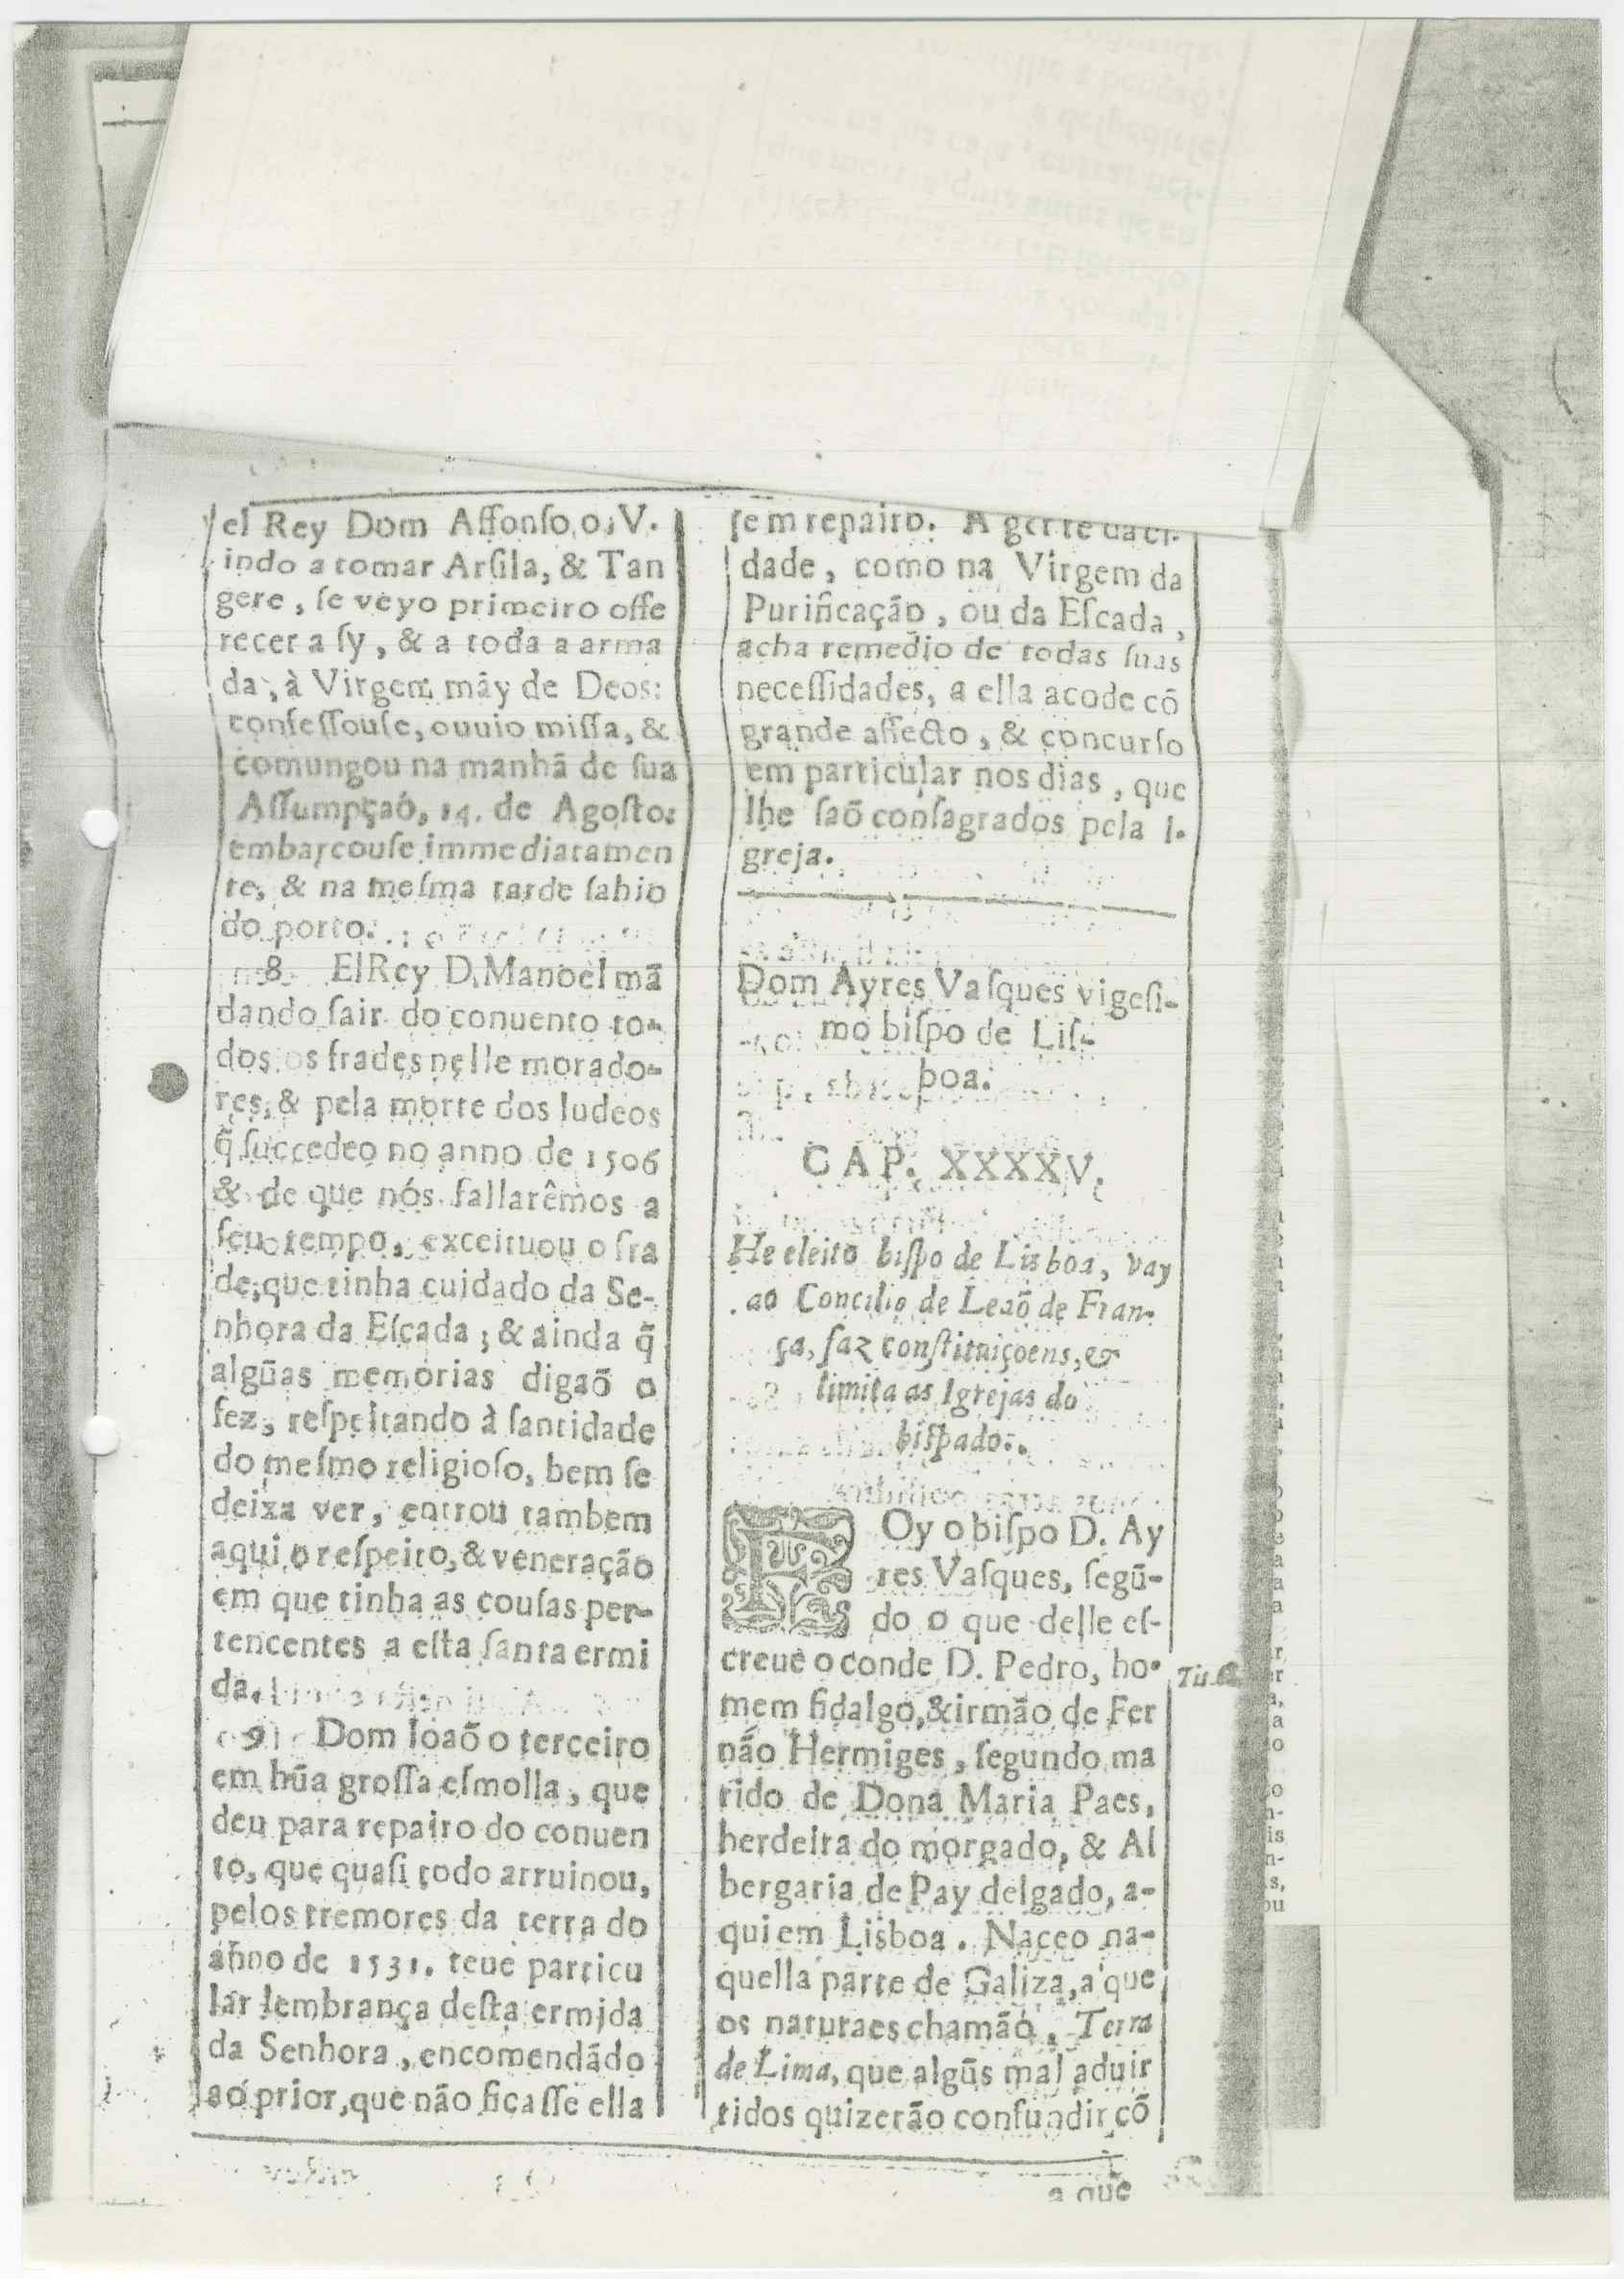 el Rey Dom Affonſo, o, V.
indo a tomar Arſila, & Tan
gere, ſe veyo primeiro offe
recer a ſy, & a toda a arma
da, à Virgem mãy de Deos:
confeſſouſe, ouuio miſſa, &
comungou na manhã de ſua
Aſſumpçaó, 14. de Agoſto:
embarcouſe immediatamen
te, & na meſma tarde ſahio
do porto.
8 ElRey D. Manoel mã
dando ſair do conuento to-
dos os frades nelle morado-
res, & pela morte dos Iudeos
q̃ ſuccedeo no anno de 1506
& de que nós fallarêmos a
ſeu tempo, exceituou o fra
de, que tinha cuidado da Se-
nhora da Eſcada; & ainda q̃
algũas memorias digaõ o
fez, reſpeitando à ſantidade
do meſmo religioſo, bem ſe
deixa ver, entrou tambem
aqui o reſpeito, & veneração
em que tinha as couſas per-
tencentes a eſta ſanta ermi
da.
9 Dom Ioaõ o terceiro
em hũa groſſa eſmolla, que
deu para repairo do conuen
to, que quaſi todo arruinou,
pelos tremores da terra do
anno de 1531. teue particu
lar lembrança deſta ermida
da Senhora, encomendãdo
ao prior, que não ficaſſe ella
ſem repairo. A gente da ci-
dade, como na Virgem da
Purificação, ou da Eſcada,
acha remedio de todas ſuas
neceſſidades, a ella acode cõ
grande affecto, & concurſo
em particular nos dias, que
lhe ſaõ conſagrados pela I-
greja.
Dom Ayres Vaſques vigeſi-
mo biſpo de Liſ-
boa.
CAP. XXXXV.
He eleito biſpo de Lisboa, vay
ao Concilio de Leaõ de Fran-
ça, faz conſtituiçoens, &
limita as Igrejas do
biſpado.
FOy o biſpo D. Ay
res Vaſques, ſegũ-
do o que delle eſ-
creue o conde D. Pedro, ho-
mem fidalgo, & irmão de Fer
não Hermiges, ſegundo ma
rido de Dona Maria Paes,
herdeira do morgado, & Al
bergaria de Pay delgado, a-
qui em Lisboa. Naceo na-
quella parte de Galiza, a que
os naturaes chamão, Terra
de Lima, que algũs mal aduir
tidos quizerão confundir cõ
a que